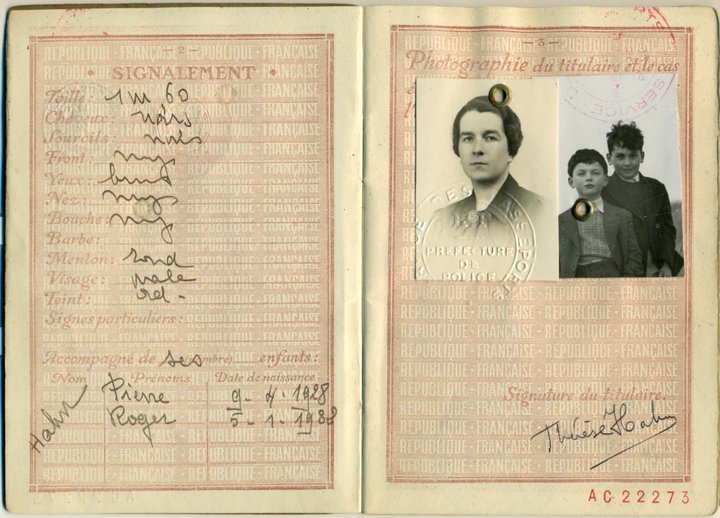 - 2 -
• SIGNALEMENT •
Taille : 1m 60
Cheveux : noirs
Sourcils : noirs
Front : moy
Yeux :
Nez : moy
Bouche : moy
Barbe :
Menton : rond
Visage : ovale
Teint :
Signes particuliers :
Accompagné de ses (nombre) enfants :
Nom Prénoms Date de naissance
Hahn Pierre 9 - 4 - 1928
Roger 5 - 1 -
- 3 -
Photographie du titulaire et le cas
PRÉFECTURE
DE
POLICE
Signature du titulaire.
Thérèse Hahn
AC22273
RÉPUBLIQUE FRANÇAISE